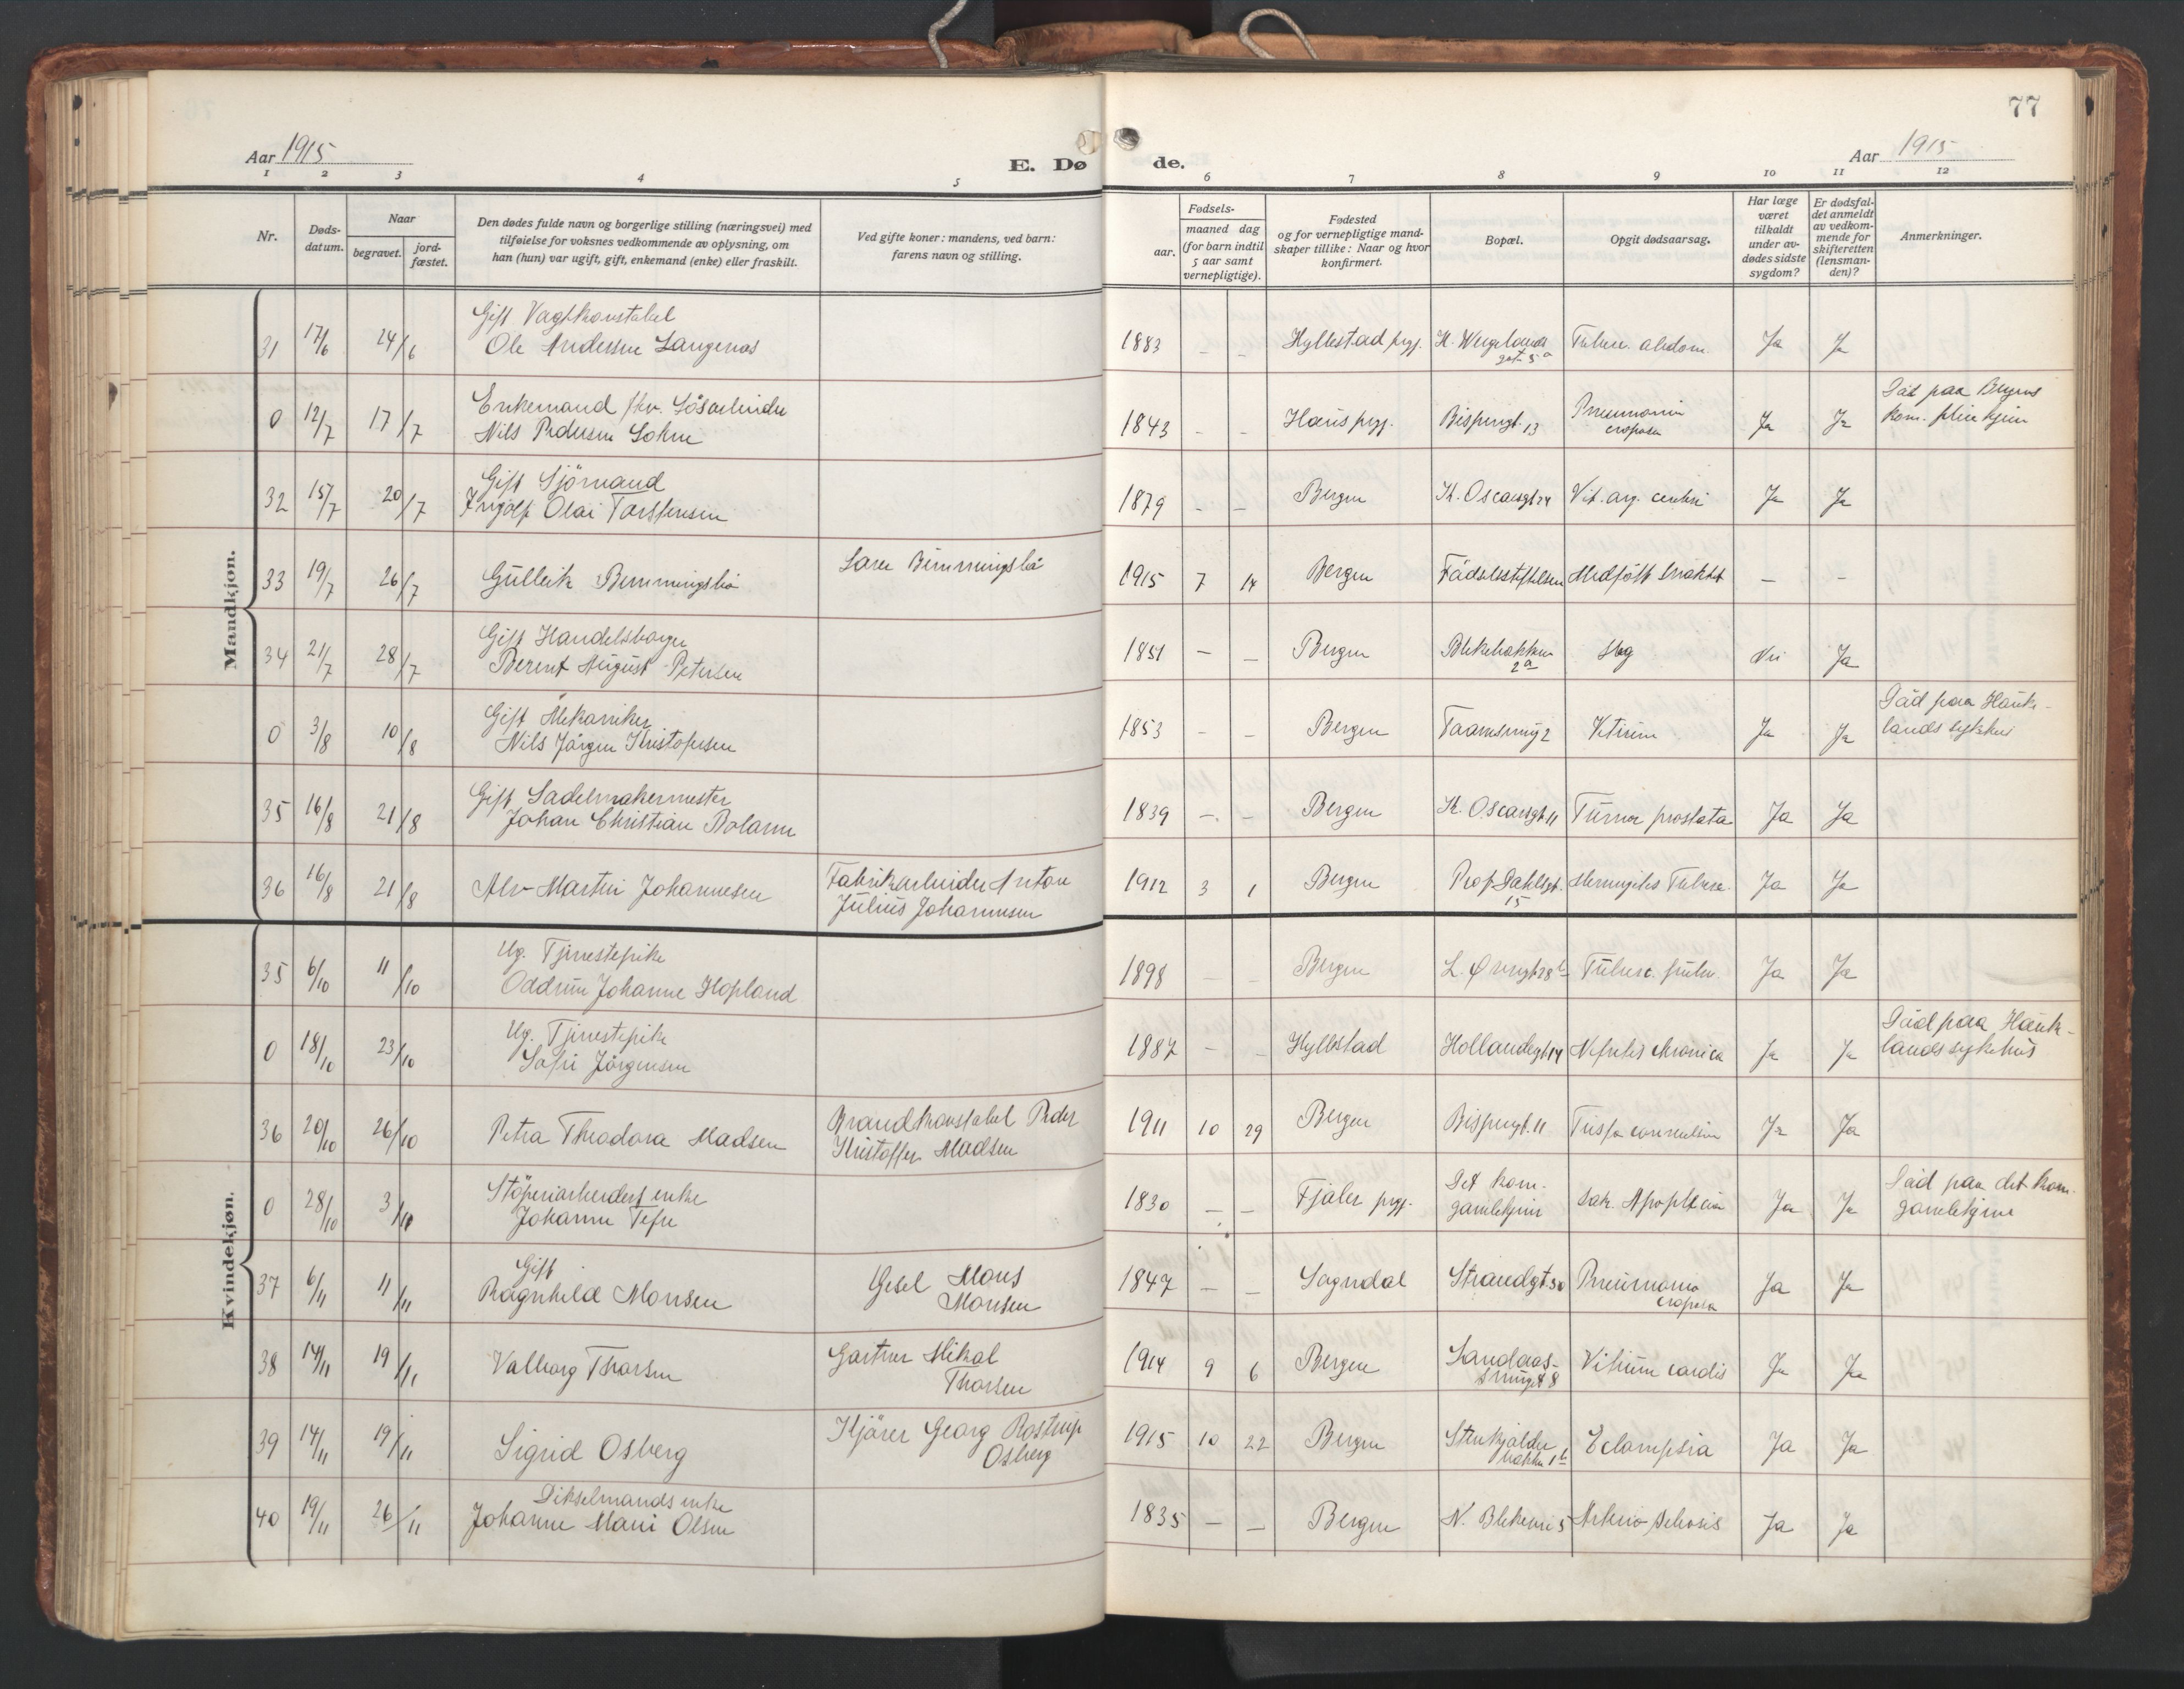 77
Aar 1915
E. Dø
de.
Aar 1915
1 2 3 4 5 6 7 8 9 10 11 12
Nr.
Døds-
datum.
Naar
begravet.
jord-
fæstet.
Den dødes fulde navn og borgerlige stilling (næringsvei) med
tilføielse for voksnes vedkommende av oplysning, om
han (hun) var ugift, gift, enkemand (enke) eller fraskilt.
Ved gifte koner: mandens, ved barn:
farens navn og stilling.
Fødsels-
aar.
maaned dag
(for barn indtil
5 aar samt
vernepligtige).
Fødested
og for vernepligtige mand-
skaper tillike: Naar og hvor
konfirmert.
Bopæl.
Opgit dødsaarsag.
Har læge
været
tilkaldt
under av-
dødes sidste
sygdom?
Er dødsfal-
det anmeldt
av vedkom-
mende for
skifteretten
(lensman-
den)?
Anmerkninger.
Mandkjøn.
Gift Vagtkonstabel
31 17/6 24/6 Ole Andersen Langenes 1883 - - Hyllestad prgj. H. Wergelands Tuberc. abdom. Ja Ja
gat. 5a
Enkemand
0 12/7 17/7 Nils Pedersen 1843 - - Haus prgj. Bispengt. 13 Pneumonia Ja Ja Död paa Bergens
croposa
kom. pleiehjem
Gift Sjömand
32 15/7 20/7 Ingolf Olai Torstensen 1879 - - Bergen K. Oscarsgt 24 Vit. org. centri Ja Ja
33 19/7 26/7 Gulleik Bemmingsbö 1915 7 14 Bergen Födselsstiftelsen Medfött svakhet - -
Gift Handelsborger
34 21/7 28/7 Berent August Petersen 1851 - - Bergen Blekebakken Nei Ja
2a
Gift Mekaniker
0 3/8 10/8 Nils Jörgen Kristofersen 1853 - - Bergen Ja Ja Död paa Hauk-
lands sykehus
Gift Sadelmakermester
35 16/8 21/8 Johan Christian Bolann 1839 -. - Bergen K. Oscarsgt 11 Tumor prostata Ja Ja
36 16/8 21/8 Alv Martin Johannesen Fabrikarbeider Anton 1912 3 1 Bergen Prof. Dahlsgt. Meningitis Tuberc. Ja Ja
Julius Johannesen 15
Kvindekjøn.
Ug. Tjenestepike
35 6/10 11/10 Oddrun Johanne Hopland 1898 - - Bergen L. Øvregt 28b Tuberc. pulm. Ja Ja
Ug. Tjenestepike
0 18/10 23/10 Sofie Jörgensen 1887 - - Hyllestad Hollendergt 14 Nefritis chronica Ja Ja Död paa Hauk-
lands sykehus
36 20/10 26/10 Petra Theodora Madsen Brandkonstabel Peder 1911 10 29 Bergen Bispengt. 11 Tussa convulsiva Ja Ja
Kristoffer Madsen
Stöperiarbeiders enke
0 28/10 3/11 Johanne 1830 - - Fjaler prgj. Det kom. Apoplexia Ja Ja Död paa det kom.
gamlehjem
gamlehjem
Gift
37 6/11 11/11 Ragnhild Monsen Gesel Mons 1847 - - Sogndal Strandgt 30 Pneumonia Ja Ja
Monsen croposa
38 14/11 19/11 Valborg Thorsen Gartner Mikal 1914 9 6 Bergen Landaas- Vitium cordis Ja Ja
Thorsen svinget 8
39 14/11 19/11 Sigrid Osberg Kjörer Georg Rostrup 1915 10 22 Bergen Stenkjelder Eclampsia Ja Ja
Osberg bakken 1b
Dikselmands enke
40 19/11 26/11 Johanne Marie Olsen 1835 - - Bergen N. Blekevei 5 Ja Ja